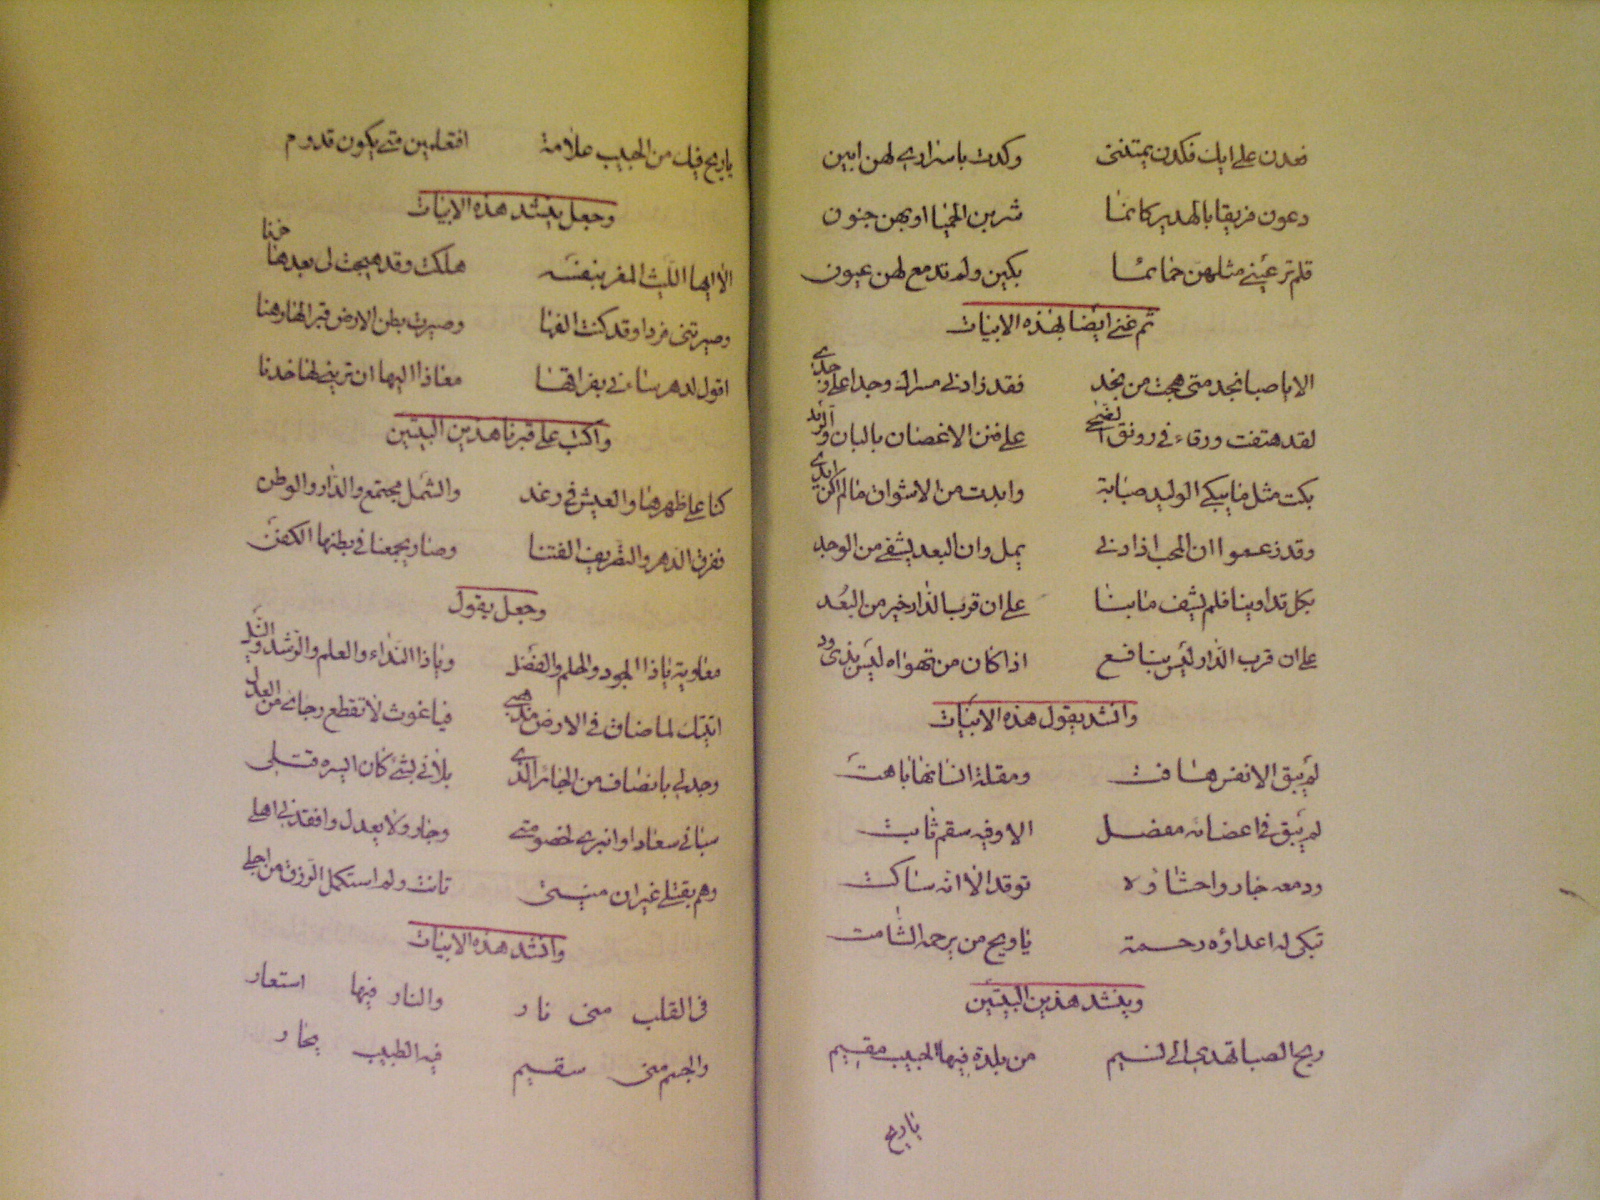 فعدن على ايك فكدن يمتننى وكدت باسرارى لهن ابين
دعون فريقا بالهدير كانما شربن الحميا او بهن جنون
فلم تر عينى مثلهن حمائما بكين ولم تدمع لهن عيون
ثم غنى ايضا بهذه الابيات
الا يا صبا نجد متى هجت من نجد فقد زادنى مسراك وجدا على وجدى
لقد هتفت ورقاء فى رونق الضحى على فنن الاغصان بالبان والرند
بكت مثل ما يبكى الوليد صبابة وابدت من الاشواق مالم اكن ابدى
وقد زعموا ان المحب اذا دنى يمل وان البعد يشفى من الوجد
بكل تداوينا فلم يشف ما بنا على ان قرب الدار خير من البعد
على ان قرب الدار ليس بنافع اذا كان من تهواه ليس بذى ود
وانشد يقول هذه الابيات
لم يبق الا نفس هافت ومقلة انسانها باهت
لم يبق فى اعضائه مفصل الا وفيه سقم ثابت
ودمعه جار واحشاؤه توقد الا انه ساكت
تبكى له اعداؤه رحمة يا ويح من يرحمه الشامت
وينشد هذين البيتين
ريح الصبا تهدى الى نسيم من بلدة فيها الحبيب مقيم
يا ريح
يا ريح فيك من الحبيب علامة افتعلمين متى يكون قدوم
وجعل ينشد هذه الابيات
الا ايها الليث المغر بنفسه هلكت وقد هيجت لى بعدها حزنا
وصيرتنى فردا وقد كنت الفها وصيرت بطن الارض قبرا لها رهنا
اقول لدهر ساءنى بفراقها معاذا الهها ان ترينى لها خدنا
واكتب على قبرنا هذين البيتين
كنا على ظهرها والعيش فى رغد والشمل مجتمع والدار والوطن
ففرق الدهر والتصريف الفتنا وصار يجمعنا فى بطنها الكفن
وجعل يقول
معاوية يا ذا الجود والحلم والفضل ويا ذا النداء والعلم والرشد والنبل
اتيتك لما ضاق فى الارض مذهبى فيا غوث لا تقطع رجائى من العدل
وجد لى بانصاف من الجائر الذى بلانى بشئ كان ايسره قتلى
سبانى سعاد او انبرى لخصومتى وجار ولا يعدل وافقدنى اهلى
وهم بقتلى غير ان منيتى تانت ولم استكمل الرزق من اجلى
وانشد هذه الابيات
فى القلب منى نار والنار فيها استعار
والجسم منى سقيم فيه الطبيب يحار